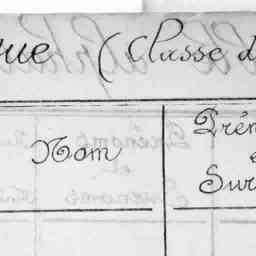 que (Classe d
Nom
Prén
e
Sur